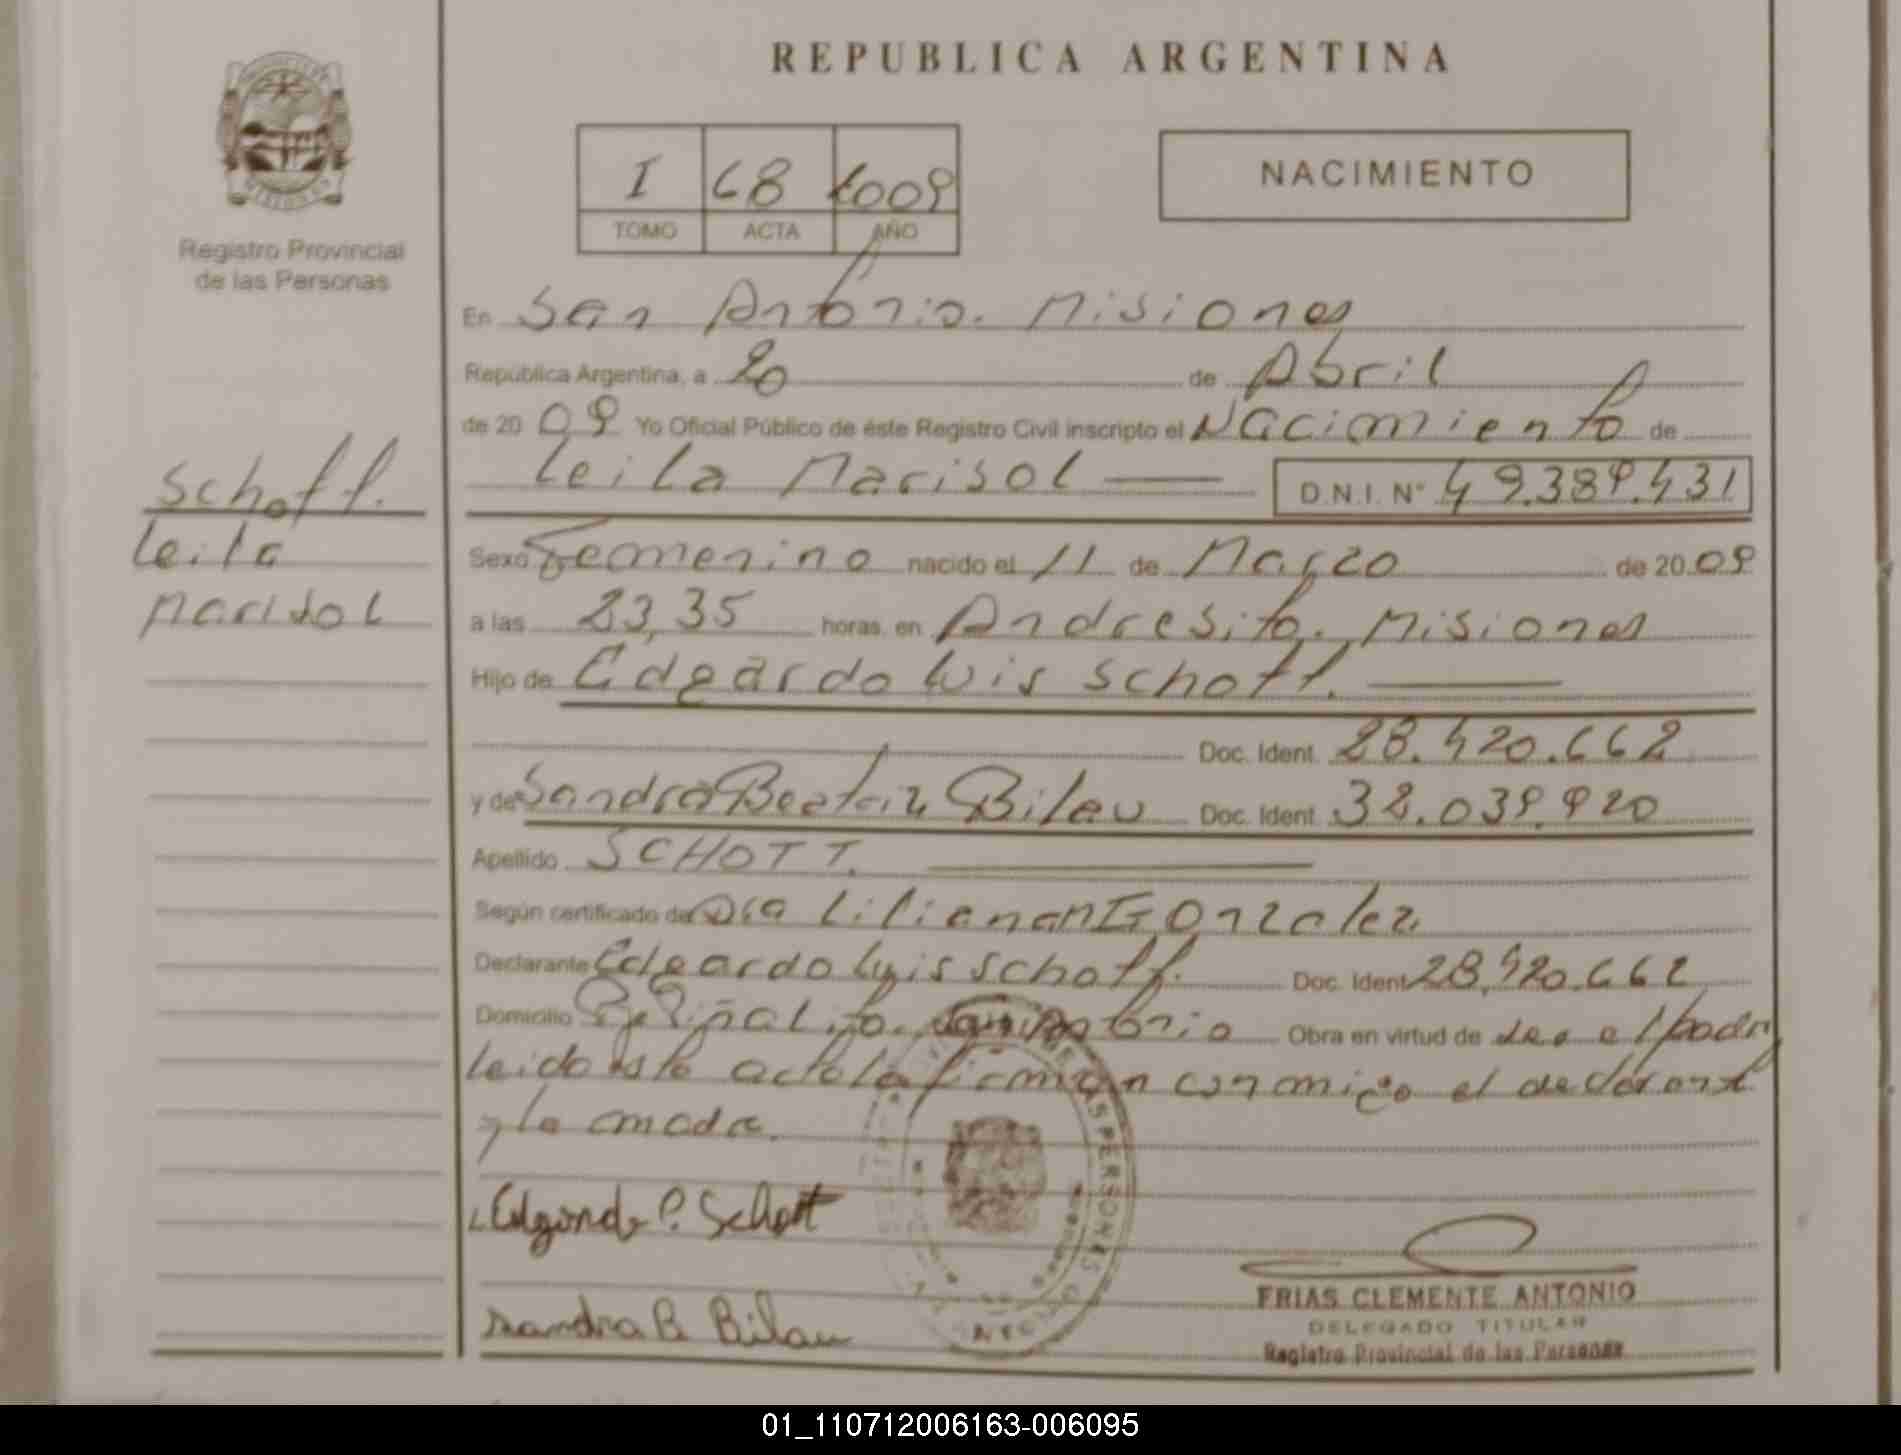 REPUBLICA ARGENTINA
I 68 2009
TOMO ACTA AÑO
NACIMIENTO
Registro Provincial
de las Personas
Schott.
Leila
Marisol
En San Antonio. Misiones
República Argentina, a 20 de Abril
de 20 09 Yo Oficial Público de éste Registro Civil inscripto el Nacimiento de
Leila Marisol D.N.I. N° 49.389.431
Sexo Femenino nacido el 11 de Marzo de 20 09
a las 23,35 horas en Andresito. Misiones
Hijo de Edgardo Luis Schott.
Doc. Ident. 28.420.662
y de Sandra Beatriz Bilau Doc. Ident. 38.039.920
Apellido SCHOTT.
Según certificado de Dra Liliana Gonzalez
Declarante Edgardo Luis Schott. Doc. Ident. 28.420.662
Domicilio Piñalito. San Antonio Obra en virtud de ser el padre
leido esto acta la firman conmigo el declarante
y la madre.
Edgardo L. Schott
Sandra B. Bilau
PERSONAS
FRIAS CLEMENTE ANTONIO
DELEGADO TITULAR
Registro Provincial de las Personas
01_110712006163-006095